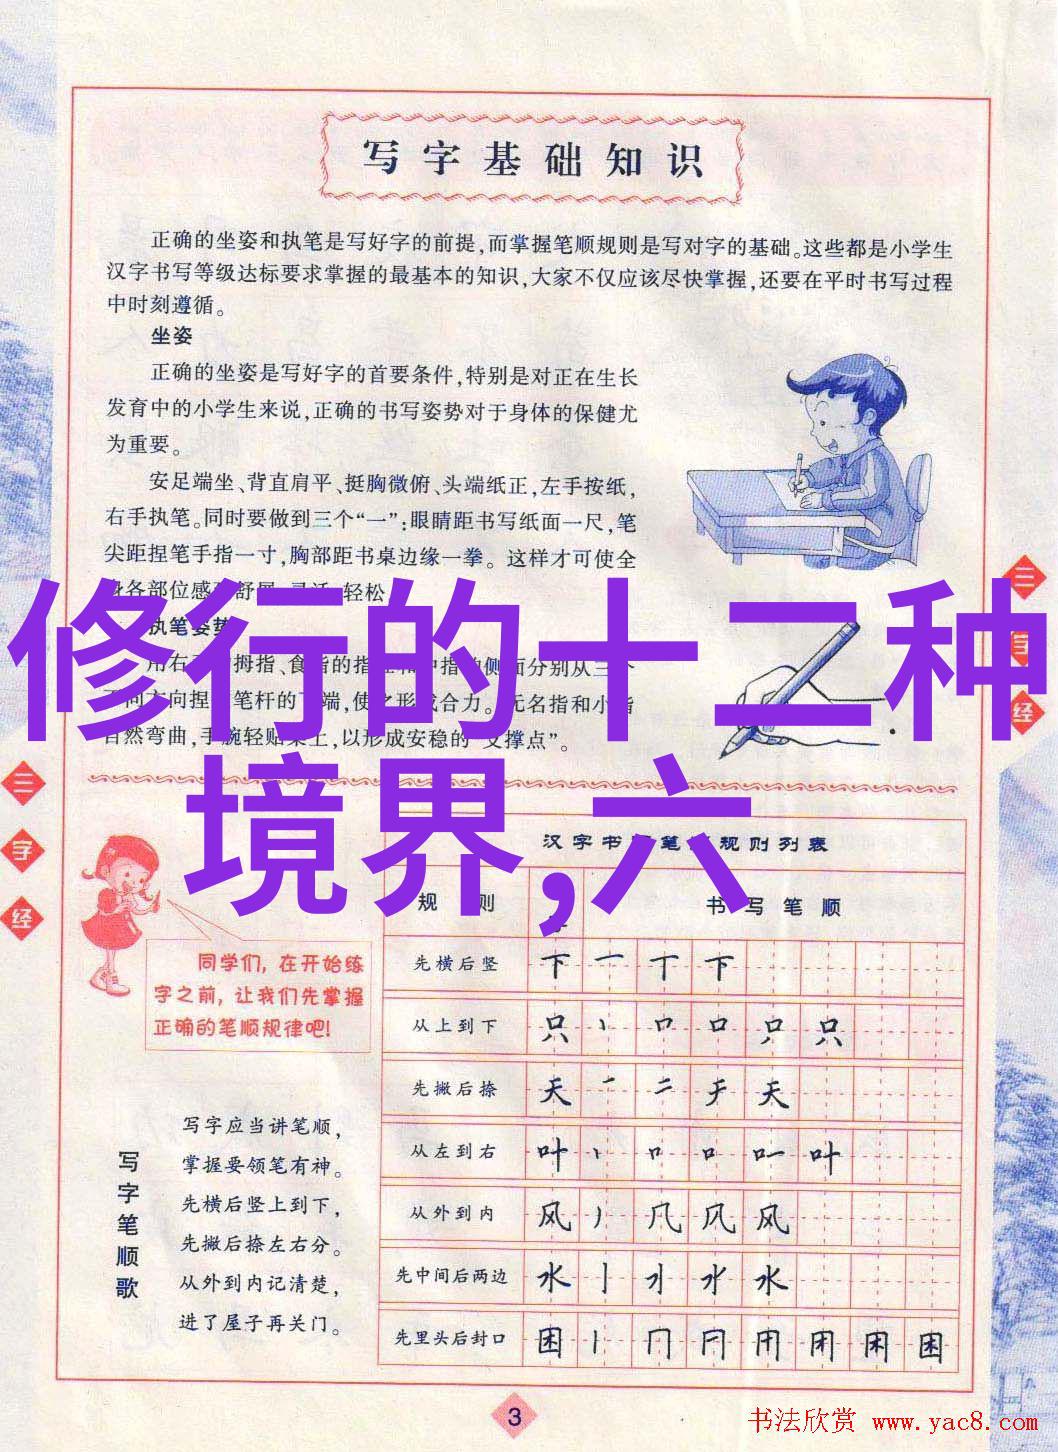 写字基础知识
正确的坐姿和执笔是写好字的前提,而掌握笔顺规则是写对字的基础。这些都是小学生
汉字书写等级达标要求掌握的最基本的知识,大家不仅应该尽快掌握,还要在平时书写过程
中时刻遵循。
坐姿
正确的坐姿是写好字的首要条件,特别是对正在生长
发育中的小学生来说,正确的书写姿势对于身体的保健尤
为重要。
安足端坐、背直肩平、挺胸微俯、头端纸正,左手按纸,
右手执笔。同时要做到三个“一”:眼睛距书写纸面一尺,笔
尖距捏笔手指一寸,胸部距书桌边缘一拳。这样才可使全
身各部位感 舒 轻松
执笔姿势
修行的十二种
境界,六
用右 拇指、食指的指 中指的侧面分别从三个
不同方向捏 笔杆的 端,使之形成合力。无名指和小指
自然弯曲,手腕轻贴桌上,以形成安稳的“支撑点”。
三字经
三字经
汉字书 笔 规则列表
规则 书写笔顺
先横后竖 下 一 丅 下
从上到下 只 丶 口 口 只 只
先撇后捺 天 一 二 チ 天
从左到右 叶 丶 口 口 叶
从外到内 风 丿 几 风 风
先中间后两边 水 亅 水
先里头后封口 困 丨 冂 困
同学们,在开始练
字之前,让我们先掌握
正确的笔顺规律吧!
写字笔顺歌
写字应当讲笔顺,
掌握要领笔有神。
先横后竖上到下,
先撇后捺左右分。
从外到内记清楚,
进了屋子再关门。
3
书法欣赏 www.yac8.com